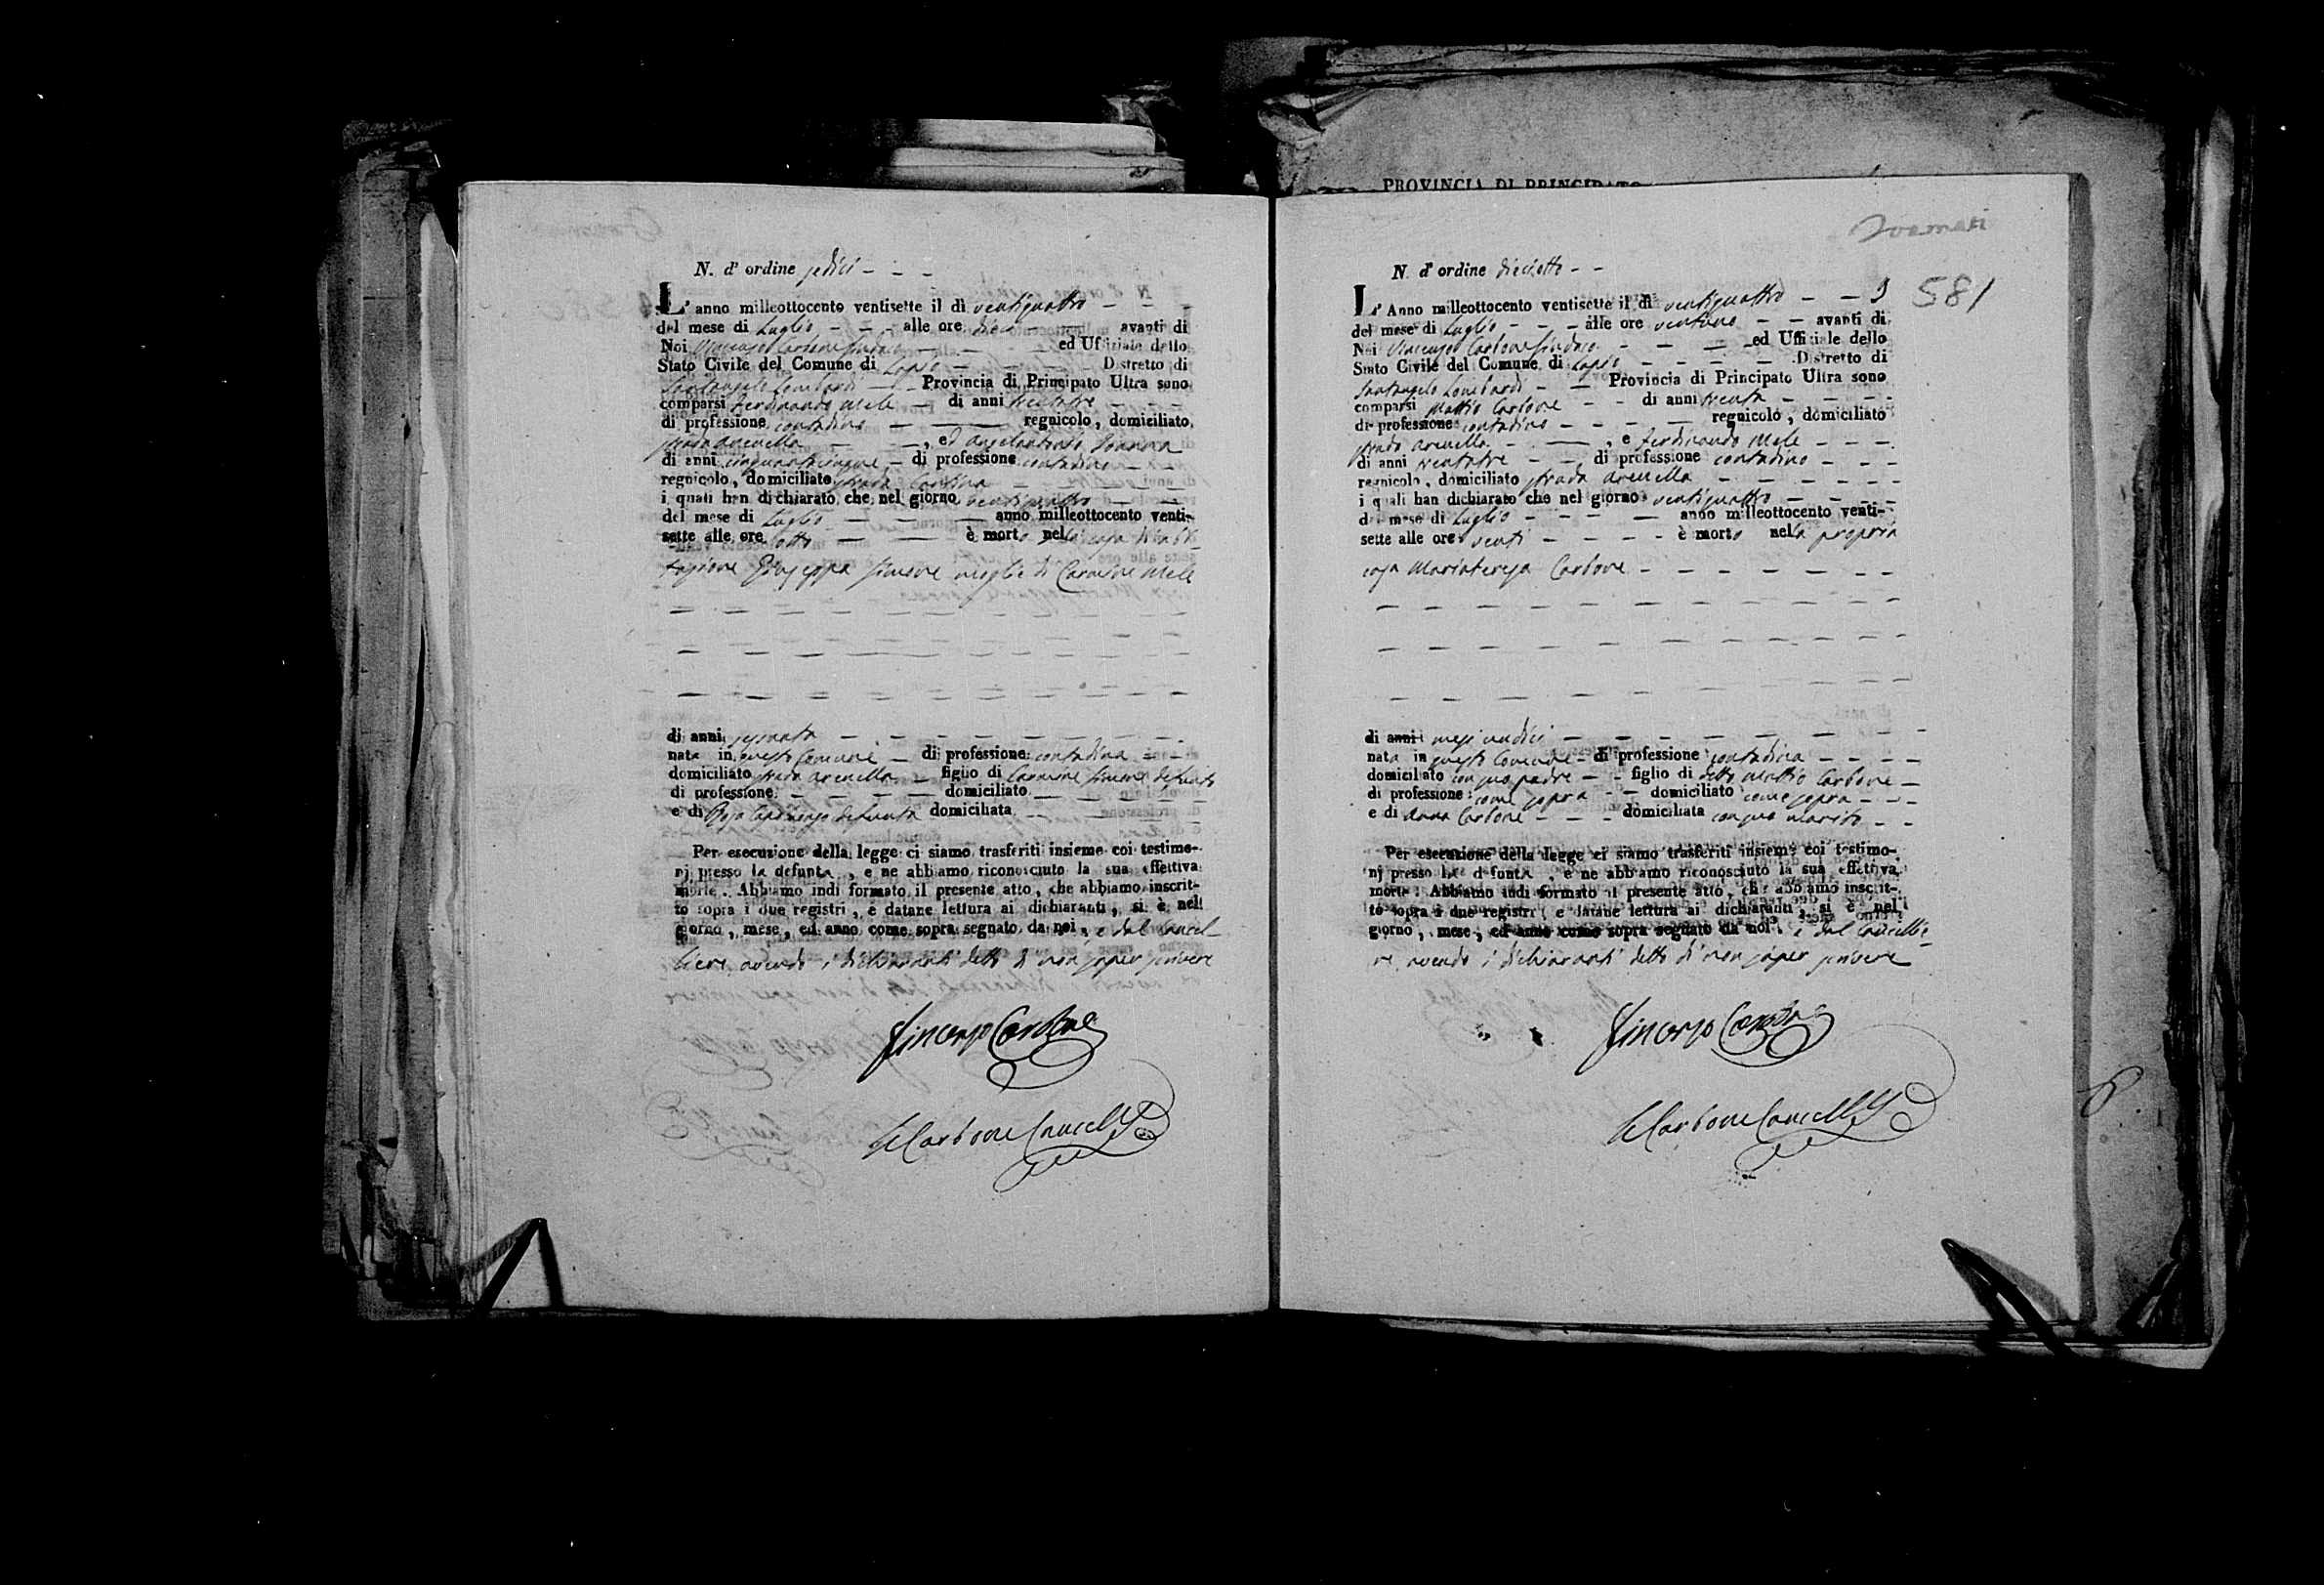 PROVINCIA DI PRINCIPATO
N. d' ordine sedici - - -
L' anno milleottocento ventisette il dì ventiquattro - - -
del mese di Luglio - - - alle ore dieci - - avanti di
Noi Vincenzo Carbone Sindaco - - - ed Uffiziale dello
Stato Civile del Comune di Lapio - - - - Distretto di
Santangelo Lombardi - - Provincia di Principato Ultra sono
comparsi Ferdinando Mele - di anni trentatre - - -
di professione contadino - - regnicolo, domiciliato
strada arenella - - , ed Angelantonio
di anni cinquantacinque - di professione contadino - - -
regnicolo, domiciliato strada - - - -
i quali han dichiarato, che nel giorno ventiquattro - - -
del mese di Luglio - - - anno milleottocento venti-
sette alle ore otto - - è morta nella casa di abi-
tazione Giuseppa Simone moglie di Carmine Mele
di anni sessanta - - - - - - - -
nata in questo Comune - di professione contadina - - -
domiciliato strada arenella - figlio di Carmine Simone defunto
di professione - - - - domiciliato - - - - -
e di Rosa defunta domiciliata - - - -
Per esecuzione della legge ci siamo trasferiti insieme coi testimo-
nj presso la defunta, e ne abbiamo riconosciuto la sua effettiva
morte. Abbiamo indi formato il presente atto, che abbiamo inscrit-
to sopra i due registri, e datane lettura ai dichiaranti, si è nel
giorno, mese, ed anno come sopra segnato da noi, e dal Cancel-
liere avendo i dichiaranti detto di non saper scrivere
Vincenzo Carbone
Carbone Cancell
N. d' ordine dieciotto - -
581
L' Anno milleottocento ventisette il dì ventiquattro - -
del mese di Luglio - - - alle ore ventuno - - avanti di
Noi Vincenzo Carbone Sindaco - - - - ed Uffiziale dello
Stato Civile del Comune di Lapio - - - - - Distretto di
Santangelo Lombardi - - Provincia di Principato Ultra sono
comparsi Mattio Carbone - - di anni trenta - - - -
di professione contadino - - - - regnicolo, domiciliato
strada arenella - - , e Ferdinando Mele - - -
di anni trentatre - - di professione contadino - - -
regnicolo, domiciliato strada arenella - - - - - -
i quali han dichiarato che nel giorno ventiquattro - - - -
del mese di Luglio - - - - anno milleottocento venti-
sette alle ore venti - - - - è morta nella propria
casa Mariateresa Carbone - - - - - - -
di anni mesi undici - - - - - - - -
nata in questo Comune - di professione contadina - - - -
domiciliato con suo padre - - figlio di detto Mattio Carbone -
di professione come sopra - - domiciliato come sopra - - -
e di Anna Carbone - - - domiciliata con suo marito - -
Per esecuzione della legge ci siamo trasferiti insieme coi testimo-
nj presso la defunta, e ne abbiamo riconosciuto la sua effettiva
morte. Abbiamo indi formato il presente atto, che abbiamo inscrit-
to sopra i due registri, e datane lettura ai dichiaranti, si è nel
giorno, mese, ed anno come sopra segnato da noi, e dal Cancellie-
re avendo i dichiaranti detto di non saper scrivere
Vincenzo Carbone
Carbone Cancell